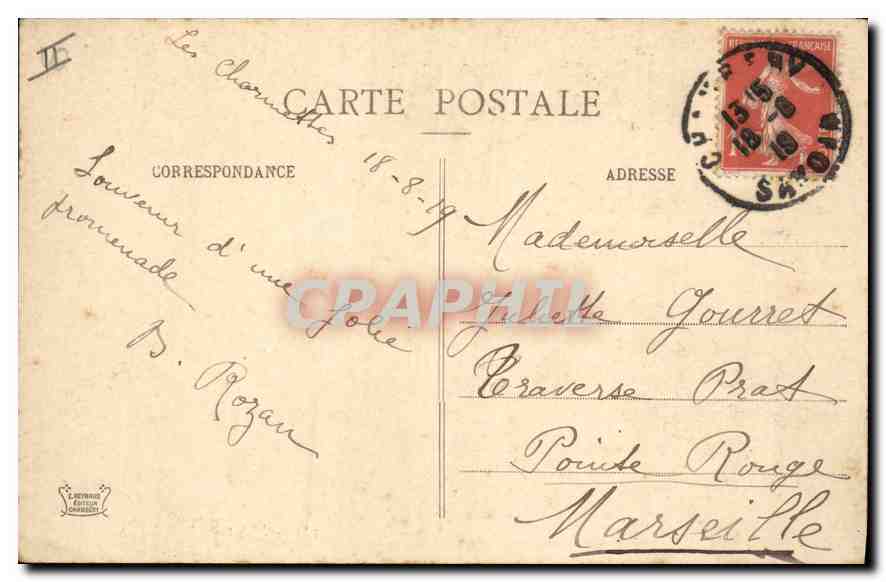 II
Les Charmettes
18-8-19
CARTE POSTALE
CORRESPONDANCE
Souvenir d'une Jolie
promenade
B. Rozan
E. REYNAUD
ÉDITEUR
CHAMBÉRY
ADRESSE
Mademoiselle
Juliette Gourret
Traverse Prat
Pointe Rouge
Marseille
FRANÇAISE
13 15
18 - 8
19
SAVOIE
CPAPHIL